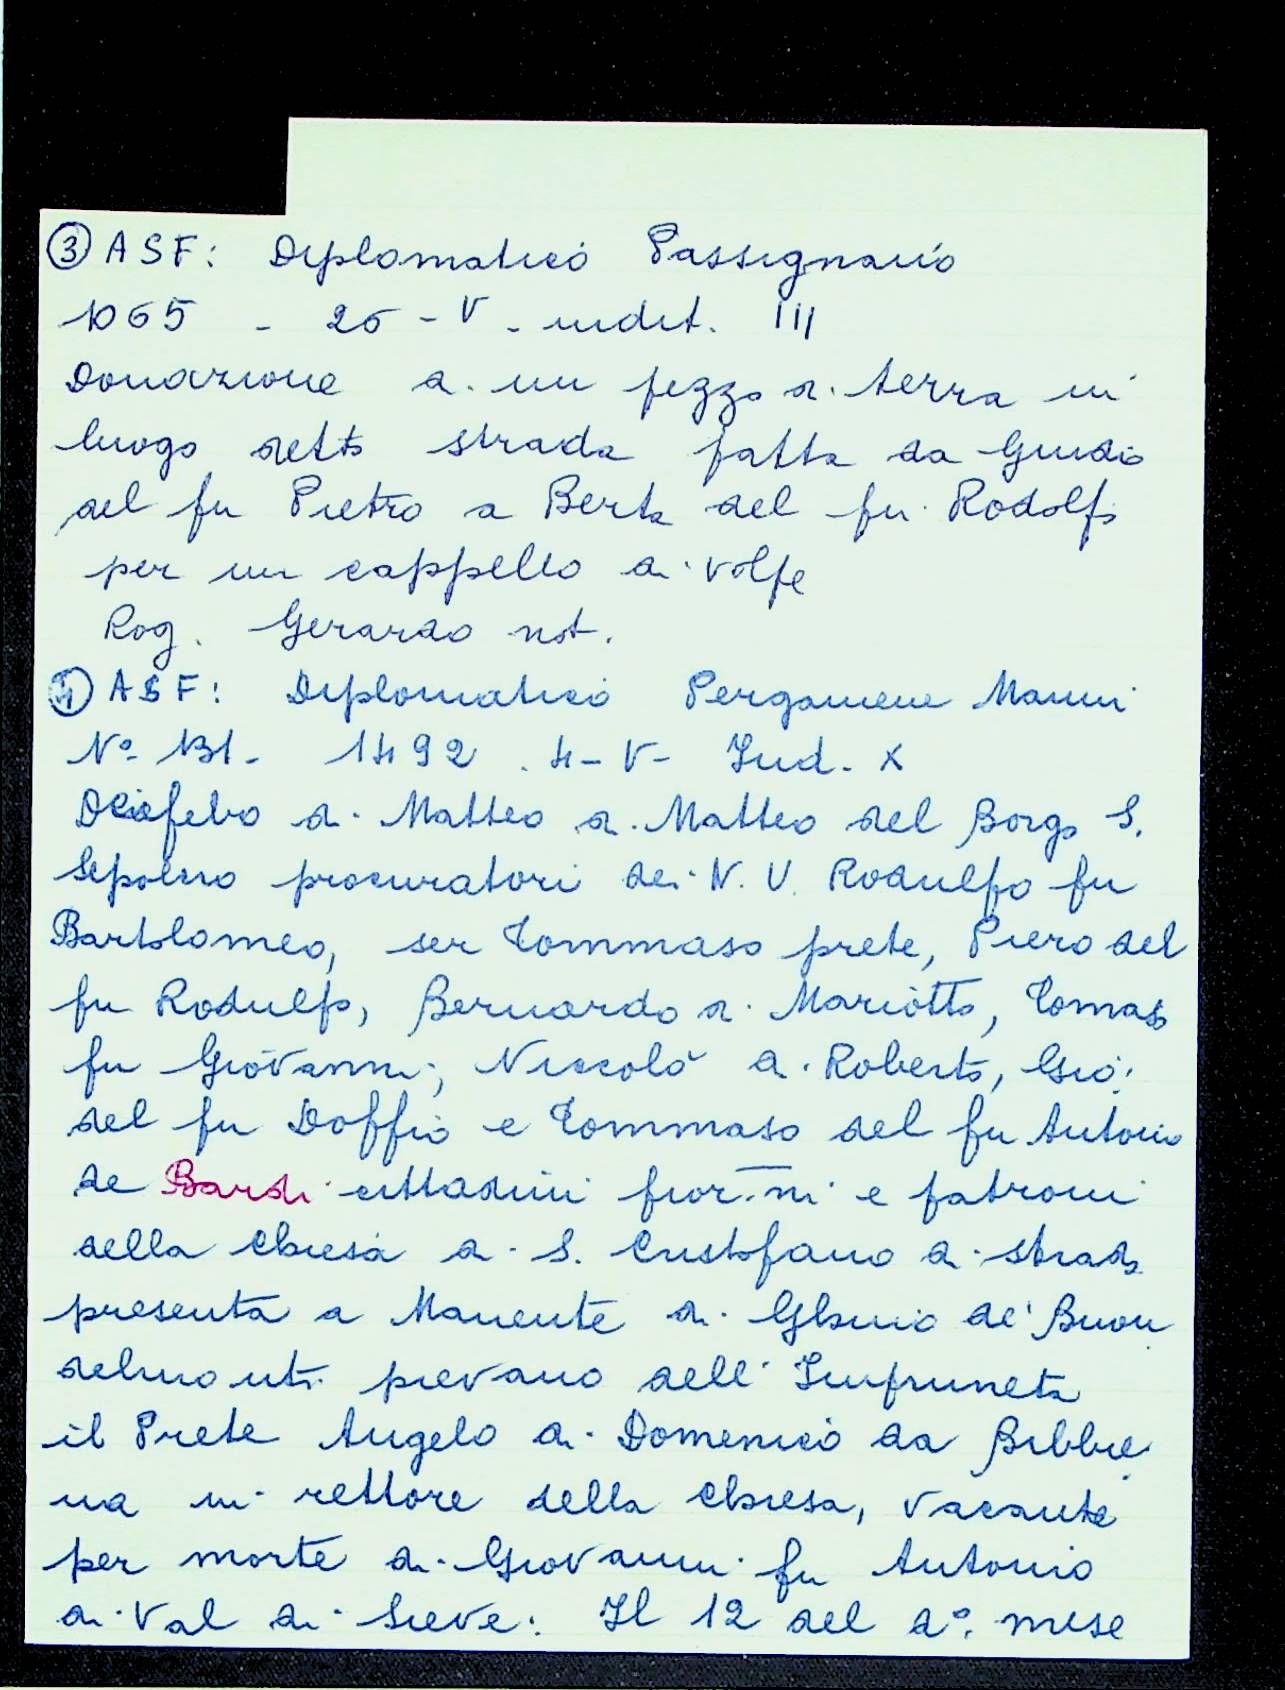 ③ ASF: Diplomatico Passignano
1065 - 26 - V - indit. III
Donazione di un pezzo di terra in
luogo detto strada fatta da Guido
del fu Pietro a Berta del fu Rodolfo
per un cappello di volpe
Rog. Gerardo not.
④ ASF: Diplomatico Pergamene Manni
N° 131 - 1492. 4 - V - Ind. X
Deifebo di Matteo di Matteo del Borgo S.
Sepolcro procuratori dei N. V. Rodulfo fu
Bartolomeo, ser Tommaso prete, Piero del
fu Rodulfo, Bernardo di Mariotto, Tomaso
fu Giovanni, Niccolò di Roberto, Gio:
del fu Doffio e Tommaso del fu Antonio
de Bardi cittadini fior.ni e patroni
della Chiesa di S. Cristofano a strada
presenta a Manente di Ghino de' Buon
delmonti pievano dell'Impruneta
il Prete Angelo di Domenico da Bibbie
na in rettore della chiesa, vacante
per morte di Giovanni fu Antonio
di Val di Sieve. Il 12 del d°. mese